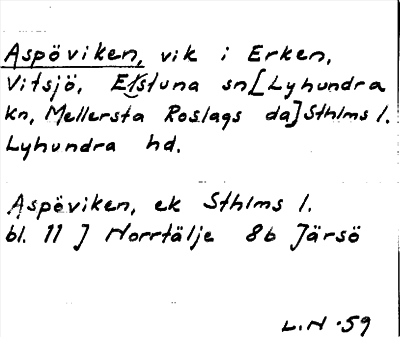 Aspöviken, vik i Erken,
Vitsjö, Estuna sn [Lyhundra
kn, Mellersta Roslags da] Sthlms l.
Lyhundra hd.
Aspöviken, ek Sthlms l.
bl. 11 J Norrtälje 8b Järsö
L.N -59